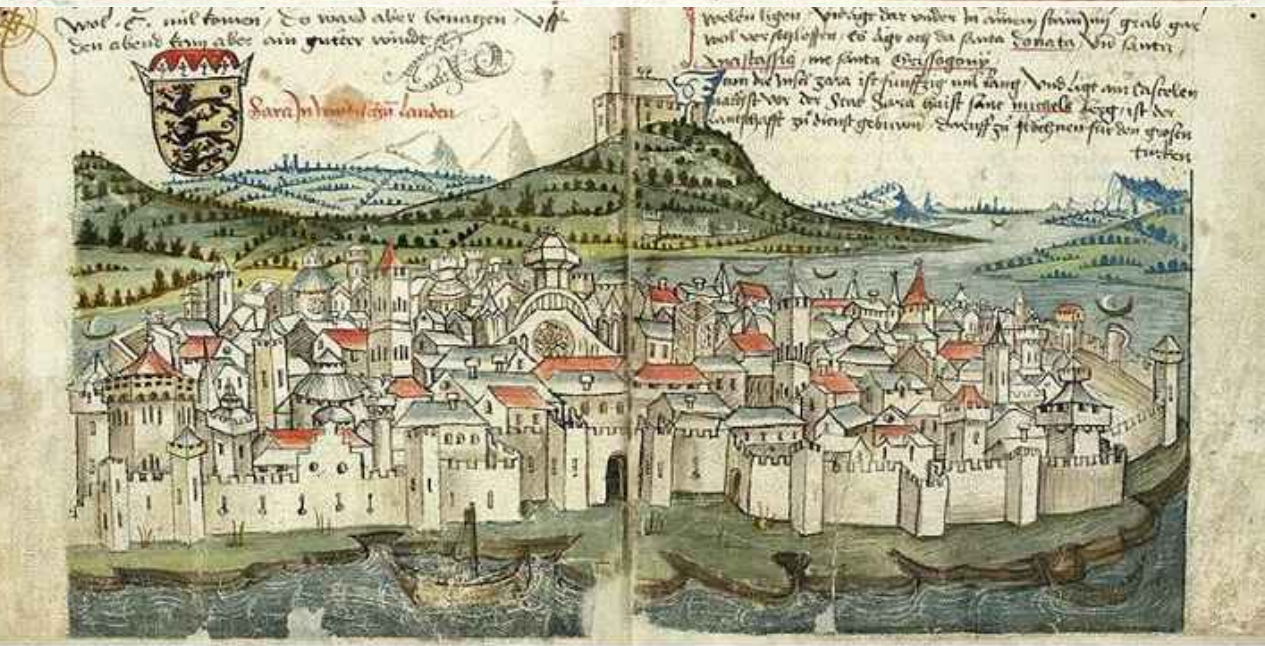 wol . C . mil komen / Do ward aber bonatzen / Uff
den abend kam aber ain gutter windt
Sara In windischen landen
welchen ligen / Und ligt dar under In ainem stain grab gar
wol verschlossen / Es ligt och da santa Donata / Und santa
Anastassia / me santa Grissogony
Item die Insel zara ist funffzig mil lang / Und ligt ain castelen
nachst vor der Stat Sara haist sant michels berg / ist der
lantschafft zu dienst gebuwen / daruff zu fur den grosen
turken